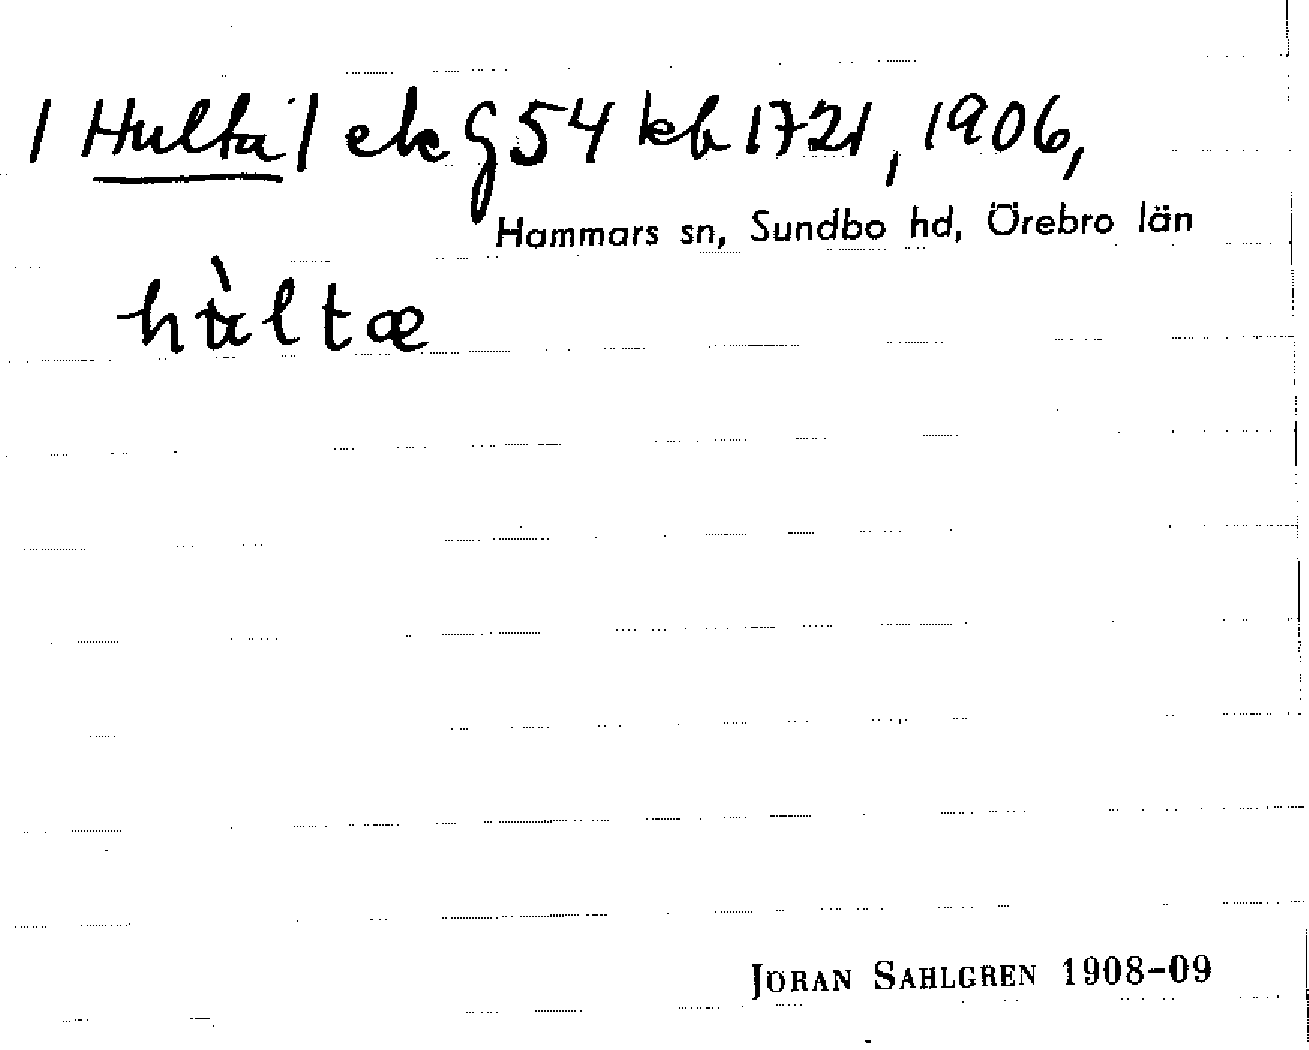 / Hulta / ek G 54 kb 1721, 1906,
Hammars sn, Sundbo hd, Örebro län
hùltæ
JÖRAN SAHLGREN 1908-09